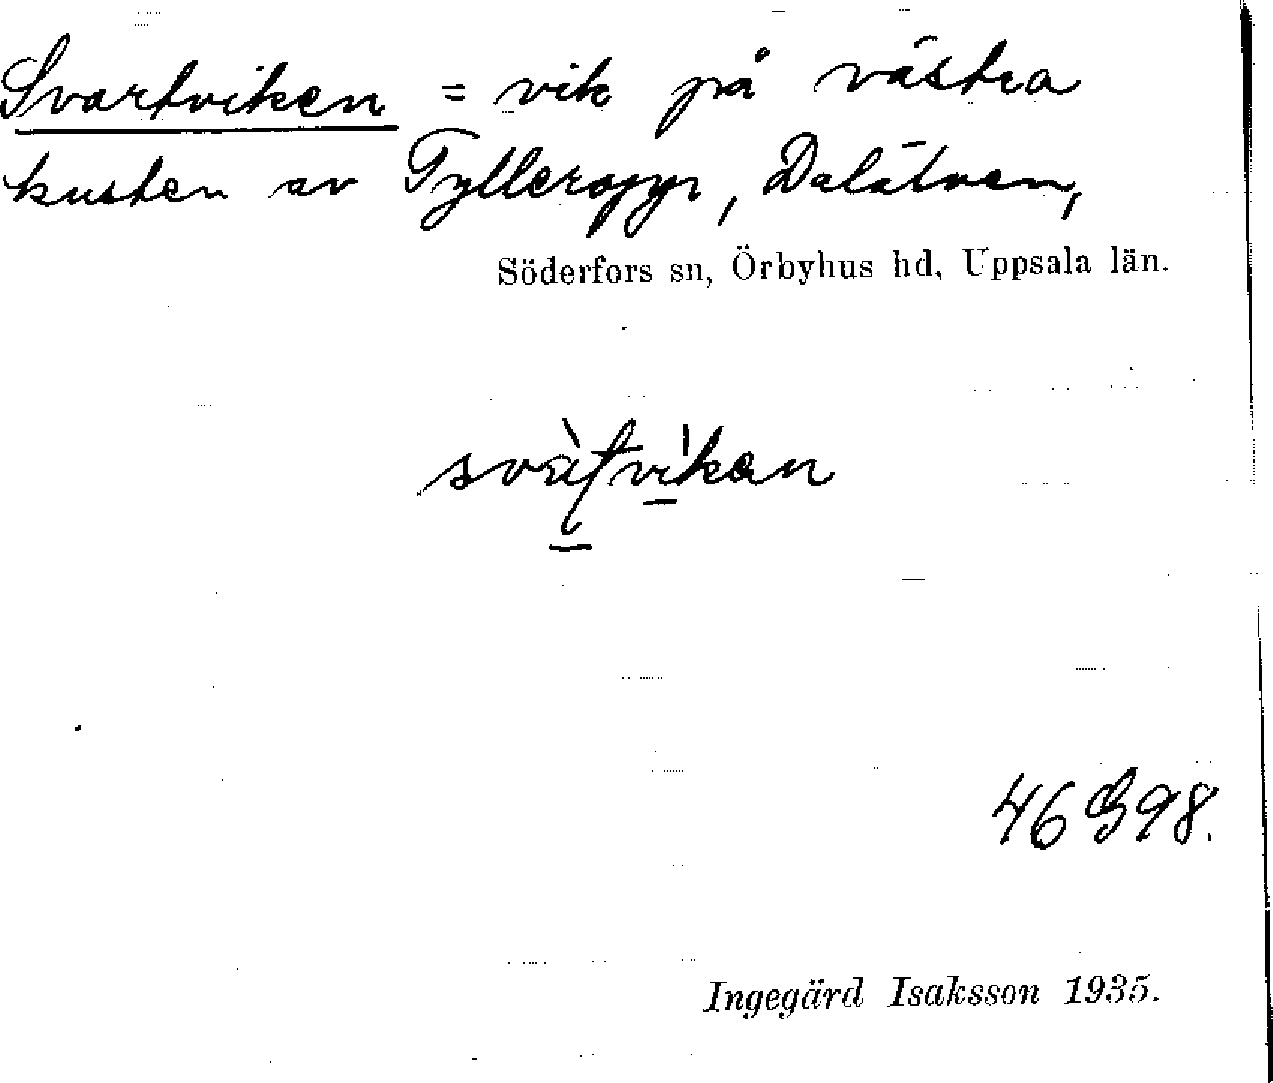 Svartviken = vik på västra
kusten av Dalälven,
Söderfors sn, Örbyhus hd, Uppsala län.
46 G 98.
Ingegärd Isaksson 1935.